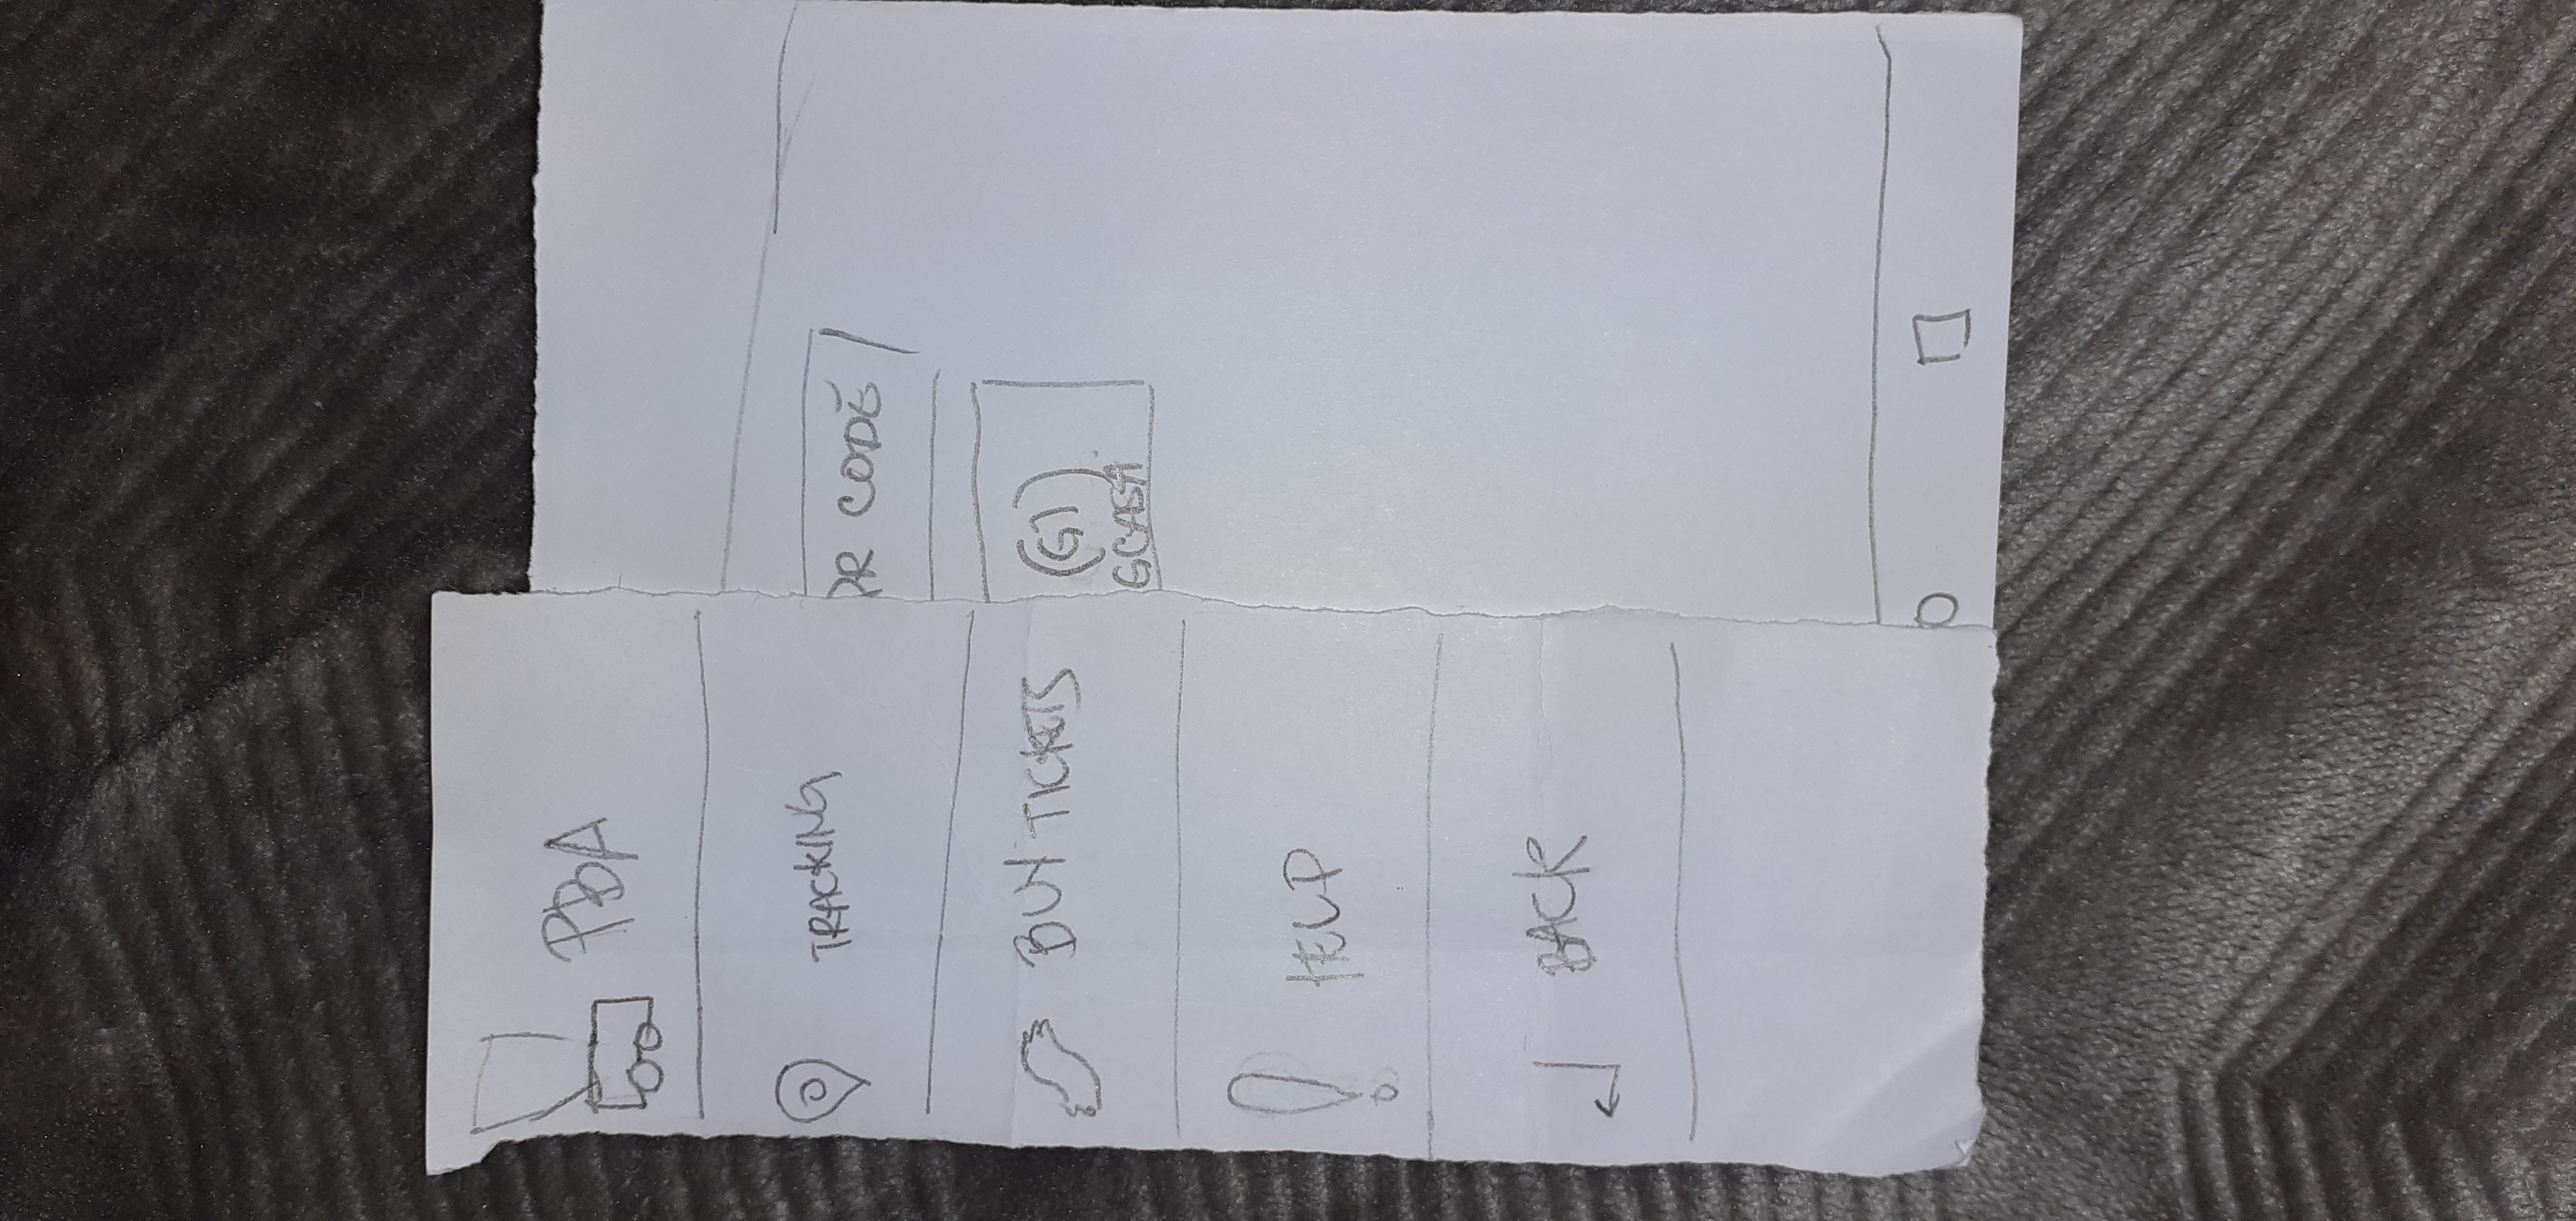 PBA
TRACKING
BUY TICKETS
HELP
BACK
QR CODE
(G))
GCASH